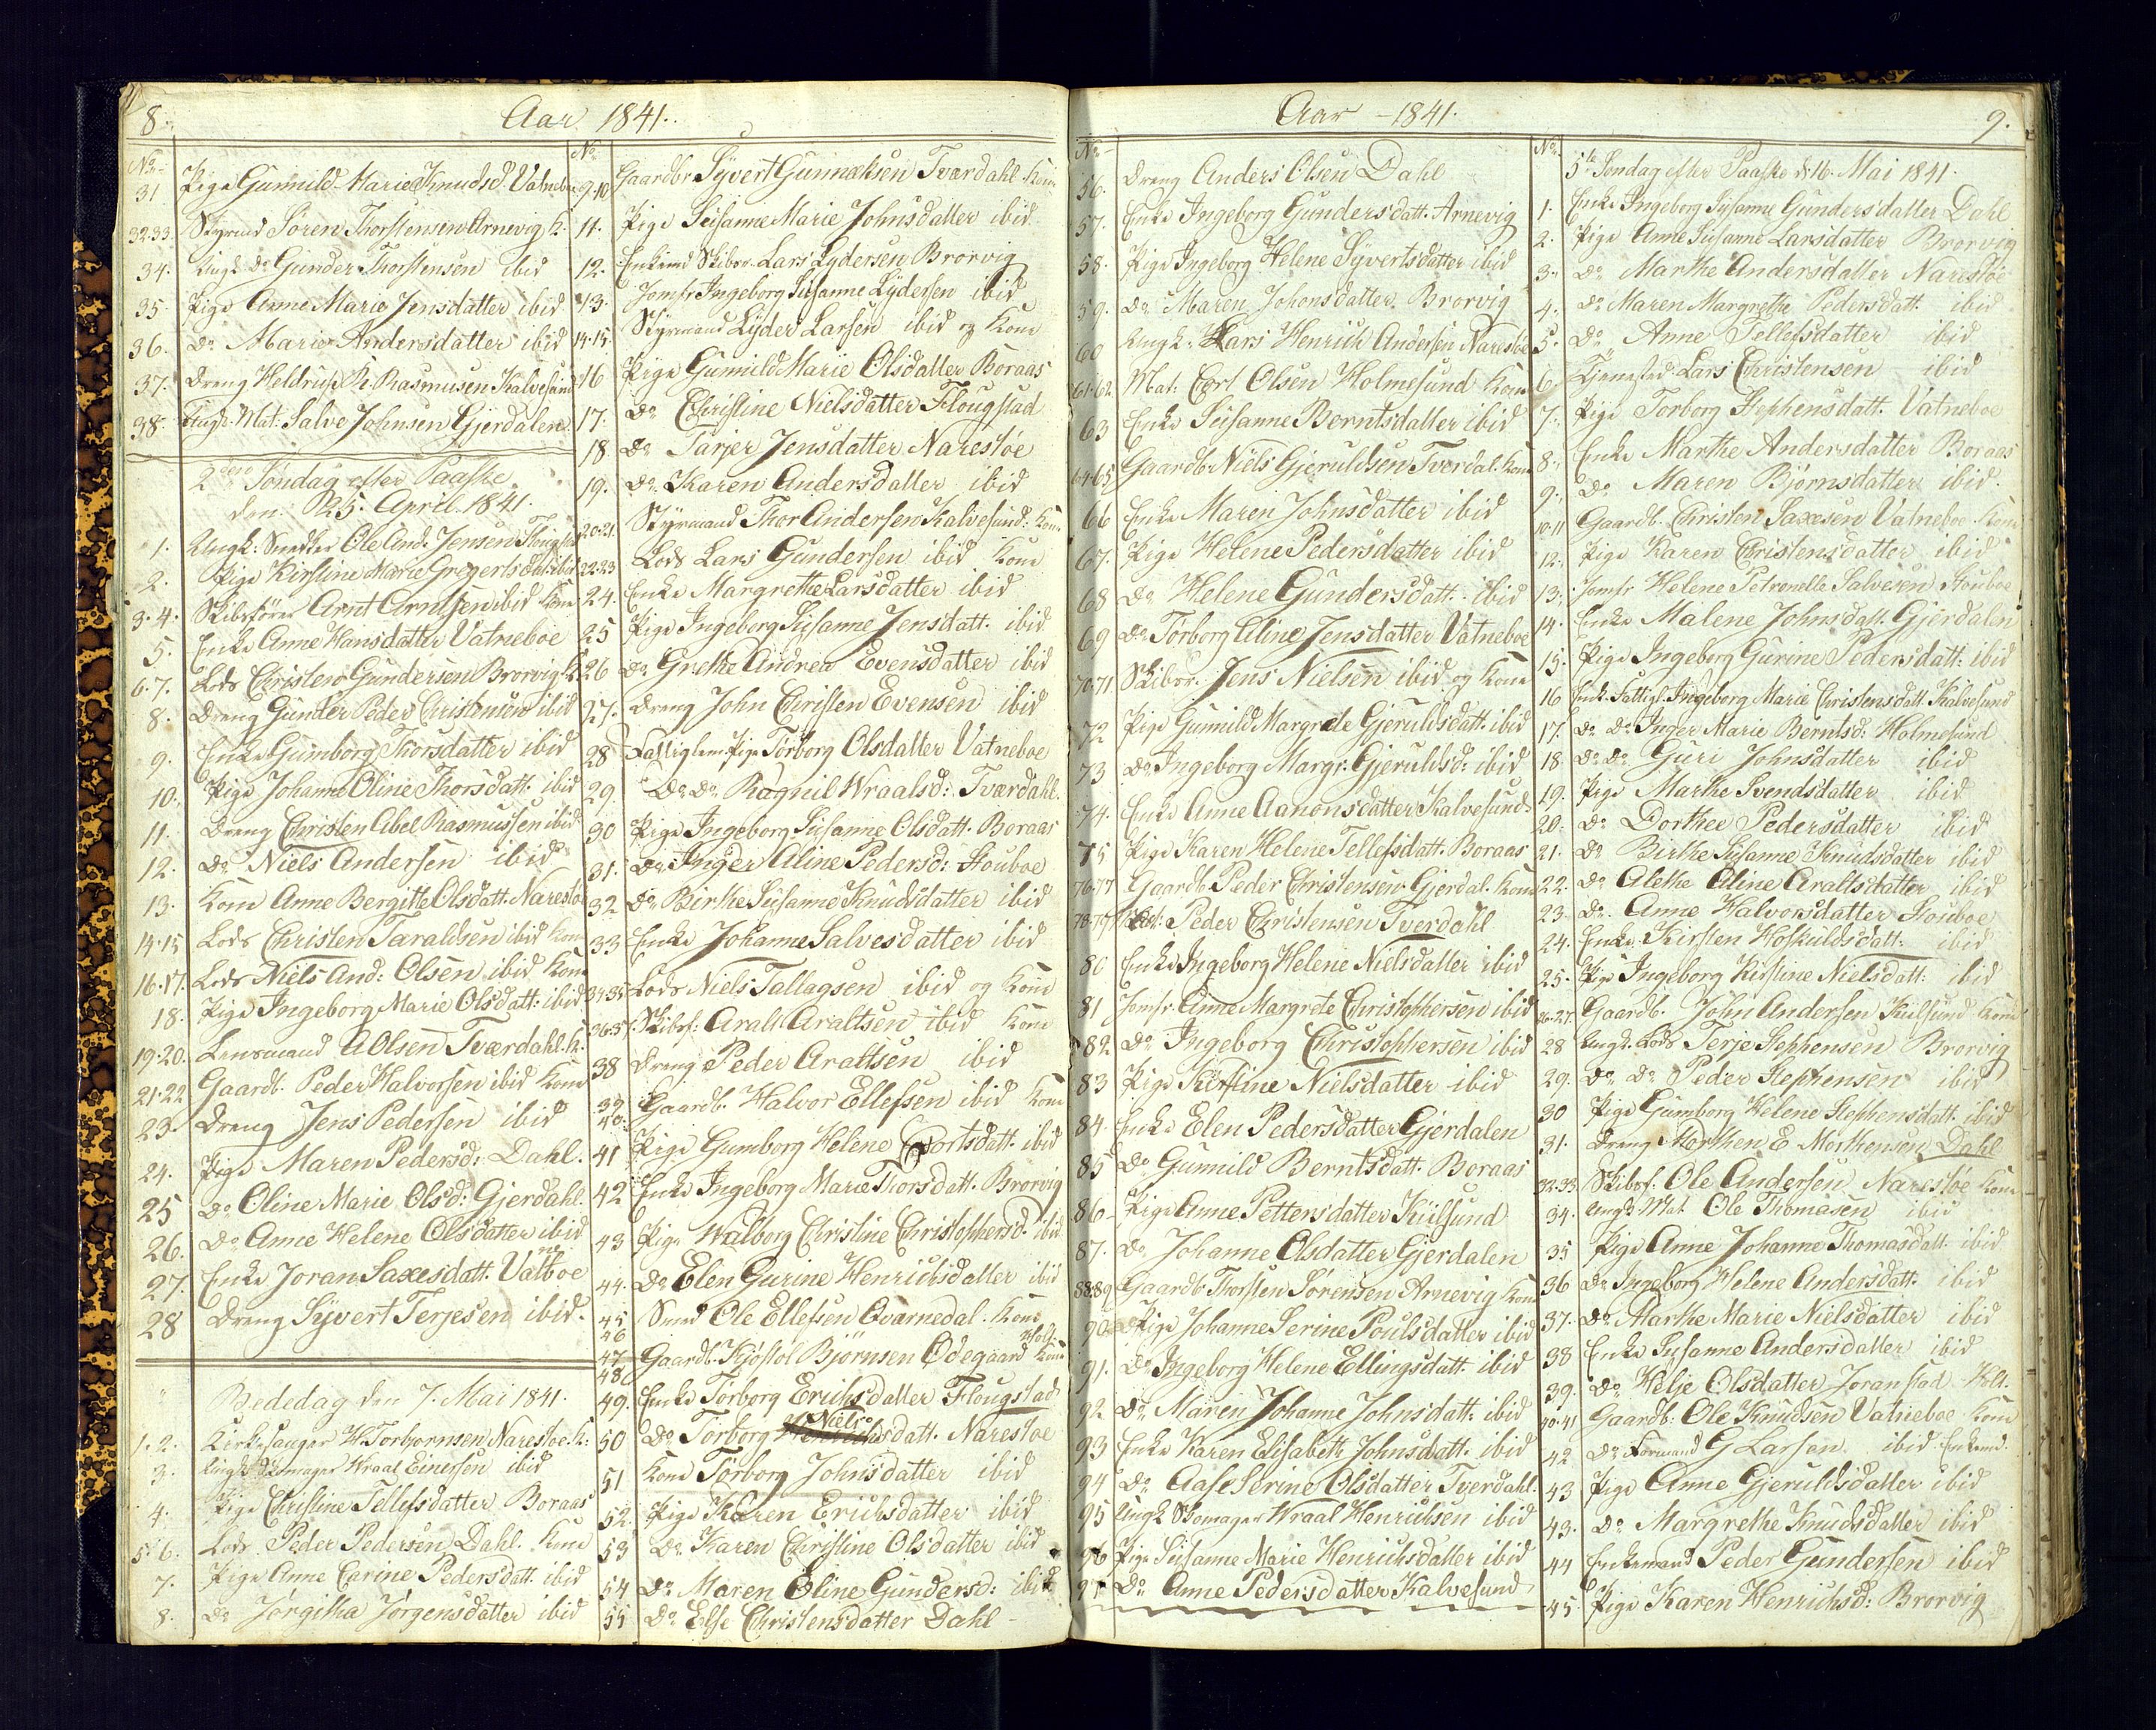 8.
Aar 1841.
No
31 Pige Gunnild Marie Knudsd. Vatnebu
32.33. Styrmd Søren Thorstensen Arnevig K.
34. Ungk. Do Gunder Thorstensen ibid
35. Pige Anne Marie Jensdatter ibid
36. Do Marie Andersdatter ibid
37. Dreng Heldrup Kr. Rasmusen Kalvesund
38. Ungk. Mat: Salve Johnsen Gjerdalen
2den Søndag efter Paaske
den 25. April. 1841.
1. Ungk: Smedker Ole And: Jensen
2. Pige Kirstine Marie Gregertsdat. ibid
3.4. Skibsfører Arnt Arntsen ibid Kone
5. Enke Anne Hansdatter Vatneboe
6.7. Lods Christen Gundersen Brorvig K.
8. Dreng Gunder Peder Christensen ibid
9. Enke Gumborg Thorsdatter ibid
10. Pige Johanne Oline Thorsdatt. ibid
11. Dreng Christen Abel Rasmussen ibid
12. Do Niels Andersen ibid
13. Kone Anne Bergitte Olsdatt. Narestø
14.15 Lods Christen Taraldsen ibid Kone
16.17. Lods Niels And: Olsen ibid Kone
18. Pige Ingeborg Marie Olsdatt: ibid
19.20. Lensmand A Olsen Tværdahl. K.
21.22 Gaardb. Peder Halvorsen ibid Kone
23. Dreng Jens Pedersen ibid
24. Pige Maren Pedersd: Dahl.
25 Do Oline Marie Olsd: Gjerdahl.
26. Do Anne Helene Olsdatter ibid
27. Enke Joran Saxesdatt. Vatneboe
28 Dreng Syvert Terjesen ibid.
Bededag den 7. Mai 1841.
1.2. Kirkesanger H. Torbjornsen Narestøe. K:
3. Ungk Skomager Wraal Einersen ibid
4. Pige Christine Tellefsdatter Boraas
5.6. Lods Peder Pedersen Dahl. Kone
7. Pige Anne Carine Pedersdatt. ibid
8. Do Jørgitha Jørgensdatter ibid
No
9.10 Gaardbr Syvert Gunnaksen Tværdahl Kone
11. Pige Susanne Marie Johnsdatter ibid
12. Enkemd Skibsr. Lars Lydersen Brorvig
13. Jomfr Ingeborg Susanne Lydersen ibid
14.15. Styrmand Lyder Larsen ibid og Kone
16 Pige Gunnild Marie Olsdatter Boraas
17. Do Christine Nielsdatter Flougstad
18 Do Tarjer Jensdatter Narestøe
19. Do Karen Andersdatter ibid
20.21. Styrmand Thor Andersen Kalvesund: Kone
22.23 Lods Lars Gundersen ibid Kone
24. Enke Margrethe Larsdatter ibid
25 Pige Ingeborg Susanne Jensdatt. ibid
26 Do Grethe Andrea Evensdatter ibid
27. Dreng John Christen Evensen ibid
28 Fattiglem. Pige Torborg Olsdatter Vatneboe
29. Do Do Ragnil Wraalsd: Tværdahl.
30 Pige Ingeborg Susanne Olsdatt. Boraas
31. Do Inger Aline Pedersd: Stouboe
32 Do Birthe Susanne Knudsdatter ibid
33 Enke Johanne Salvesdatter ibid
34.35 Lods Niels Tallagsen ibid og Kone
36.37. Skibsf: Aralt Araltsen ibid Kone
38 Dreng Peder Araltsen ibid
39 40. Gaardb. Halvor Ellefsen ibid Kone
41 Pige Gumborg Helene Cortsdatt. ibid
42 Enke Ingeborg Marie Thorsdatt. Brorvig
43 Pige Walborg Christine Christophersd. ibid
44. Do Elen Gurine Henrichsdatter ibid
45 46 Smed Ole Ellefsen Qvarnedal. Kone
47 48 Gaardb. Kjøstol Bjørnsen Ødegaard Holt: Kone
49. Enke Torborg Erichsdatter Flougstad
50 Do Torborg Nielsdatt. Narestøe
51 Kone Torborg Johnsdatter ibid
52. Pige Karen Erichsdatter ibid
53 Do Karen Christine Olsdatter ibid
54 Do Maren Oline Gundersd: ibid
55 Do Else Christensdatter Dahl
Aar - 1841.
9.
No
56. Dreng Anders Olsen Dahl
57. Enke Ingeborg Gundersdatt. Arnevig
58. Pige Ingeborg Helene Syvertsdatter ibid
59. Do Maren Johonsdatter. Brorvig
60 Ungk. Hans Henrich Andersen Narestøe
61.62. Mat: Cort Olsen Holmesund Kone
63 Enke Susanne Berntsdatter ibid
64.65 Gaardb. Niels Gjeruldsen Tverdal. Kone
66 Enke Maren Johnsdatter ibid
67. Pige Helene Pedersdatter ibid
68 Do Helene Gundersdatt. ibid
69 Do Torborg Eline Jensdatter Vatneboe
70.71 Skibsr. Jens Nielsen ibid og Kone
72 Pige Gunnild Margrete Gjeruldsdatt. ibid
73 Do Ingeborg Margr: Gjeruldsd: ibid
74. Enke Anne Aanonsdatter Kalvesund
75 Pige Karen Helene Tellefsdatt. Boraas
76.77 Gaardb. Peder Christensen Gjerdal. Kone
78.79 Peder Christensen Tverdahl
80 Enke Ingeborg Helene Nielsdatter ibid
81 Jomfr. Anne Margrete Christophersen ibid
82 Do Ingeborg Christophersen ibid
83 Pige Kirstine Nielsdatter ibid
84. Enke Elen Pedersdatter Gjerdalen
85 Do Gunnild Berntsdatt. Boraas
86- Pige Anne Pettersdatter Kiilsund
87. Do Johanne Olsdatter Gjerdalen
88.89 Gaardb. Thorsten Sørensen Arnevig Kone
90 Pige Johanne Serine Poulsdatter ibid
91. Do Ingeborg Helene Ellingsdatt. ibid
92 Do Maren Johanne Johnsdatt. ibid
93 Enke Karen Elisabeth Johnsdatt. ibid
94 Do Aase Serine Olsdatter Tverdahl.
95 Ungk Skomager Wraal Henrichsen ibid
96 Pige Susanne Marie Henrichsdatter ibid
97. Do Anne Pedersdatter Kalvesund
No
5te Søndag efter Paaske d: 16. Mai 1841.
1. Enke Ingeborg Susanne Gundersdatter Dahl
2. Pige Anne Susanne Larsdatter Brorvig
3. Do Marthe Andersdatter Narestøe
4. Do Maren Margrethe Pedersdatt. ibid
5. Do Anne Tellefsdatter ibid
6. Tjenestkd. Lars Christensen ibid
7. Pige Torborg Stephensdatt. Vatneboe
8. Enke Marthe Andersdatter Boraas
9. Do Maren Bjørnsdatter ibid.
10.11 Gaardb. Christen Saxesen Vatneboe Kone
12. Pige Karen Christensdatter ibid
13. Jomfr Helene Petronelle Salvesen Stouboe
14. Enke Malene Johnsdatt. Gjerdalen
15. Pige Ingeborg Gurine Pedersdatt: ibid
16 Enk. Fattigl. Ingeborg Marie Christensdatt. Kalvesund
17. Do Do Inger Marie Berntsd: Holmesund
18 Do Do Guri Johnsdatter ibid
19. Pige Marthe Svendsdatter ibid
20. Do Dorthee Pedersdatter ibid
21. Do Birthe Susanne Knudsdatter ibid
22. Do Alethe Aline Araltsdatter ibid
23. Do Anne Halvorsdatter Stouboe
24. Enke Kirsten Hofkuldsdatt: ibid
25. Pige Ingeborg Kirstine Nielsdatt: ibid
26.27. Gaardb. John Andersen Kiilsund Kone
28 Ungk. Lods Terje Stephensen Brorvig
29. Do Do Peder Stephensen ibid
30 Pige Gumborg Helene Stephensdatt. ibid
31. Dreng Morthen E Morthensen Dahl
32.33 Skibsf. Ole Andersen Narestøe Kone
34. Ungk Mat Ole Thomasen ibid
35 Pige Anne Johanne Thomasdatt. ibid
36 Do Ingeborg Helene Andersdatt. ibid
37. Do Marthe Marie Nielsdatter ibid
38 Enke Susanne Andersdatter ibid
39. Do Helje Olsdatter Joranstad Holt.
40.41 Gaardb: Ole Knudsen Vatneboe Kone
42 Do Formand G Larsen ibid Enkemd.
43 Pige Anne Gjeruldsdatter ibid
43. Do Margrethe Knudsdatter ibid
44 Enkemand Peder Gundersen ibid
45. Pige Karen Henrichsd: Brorvig